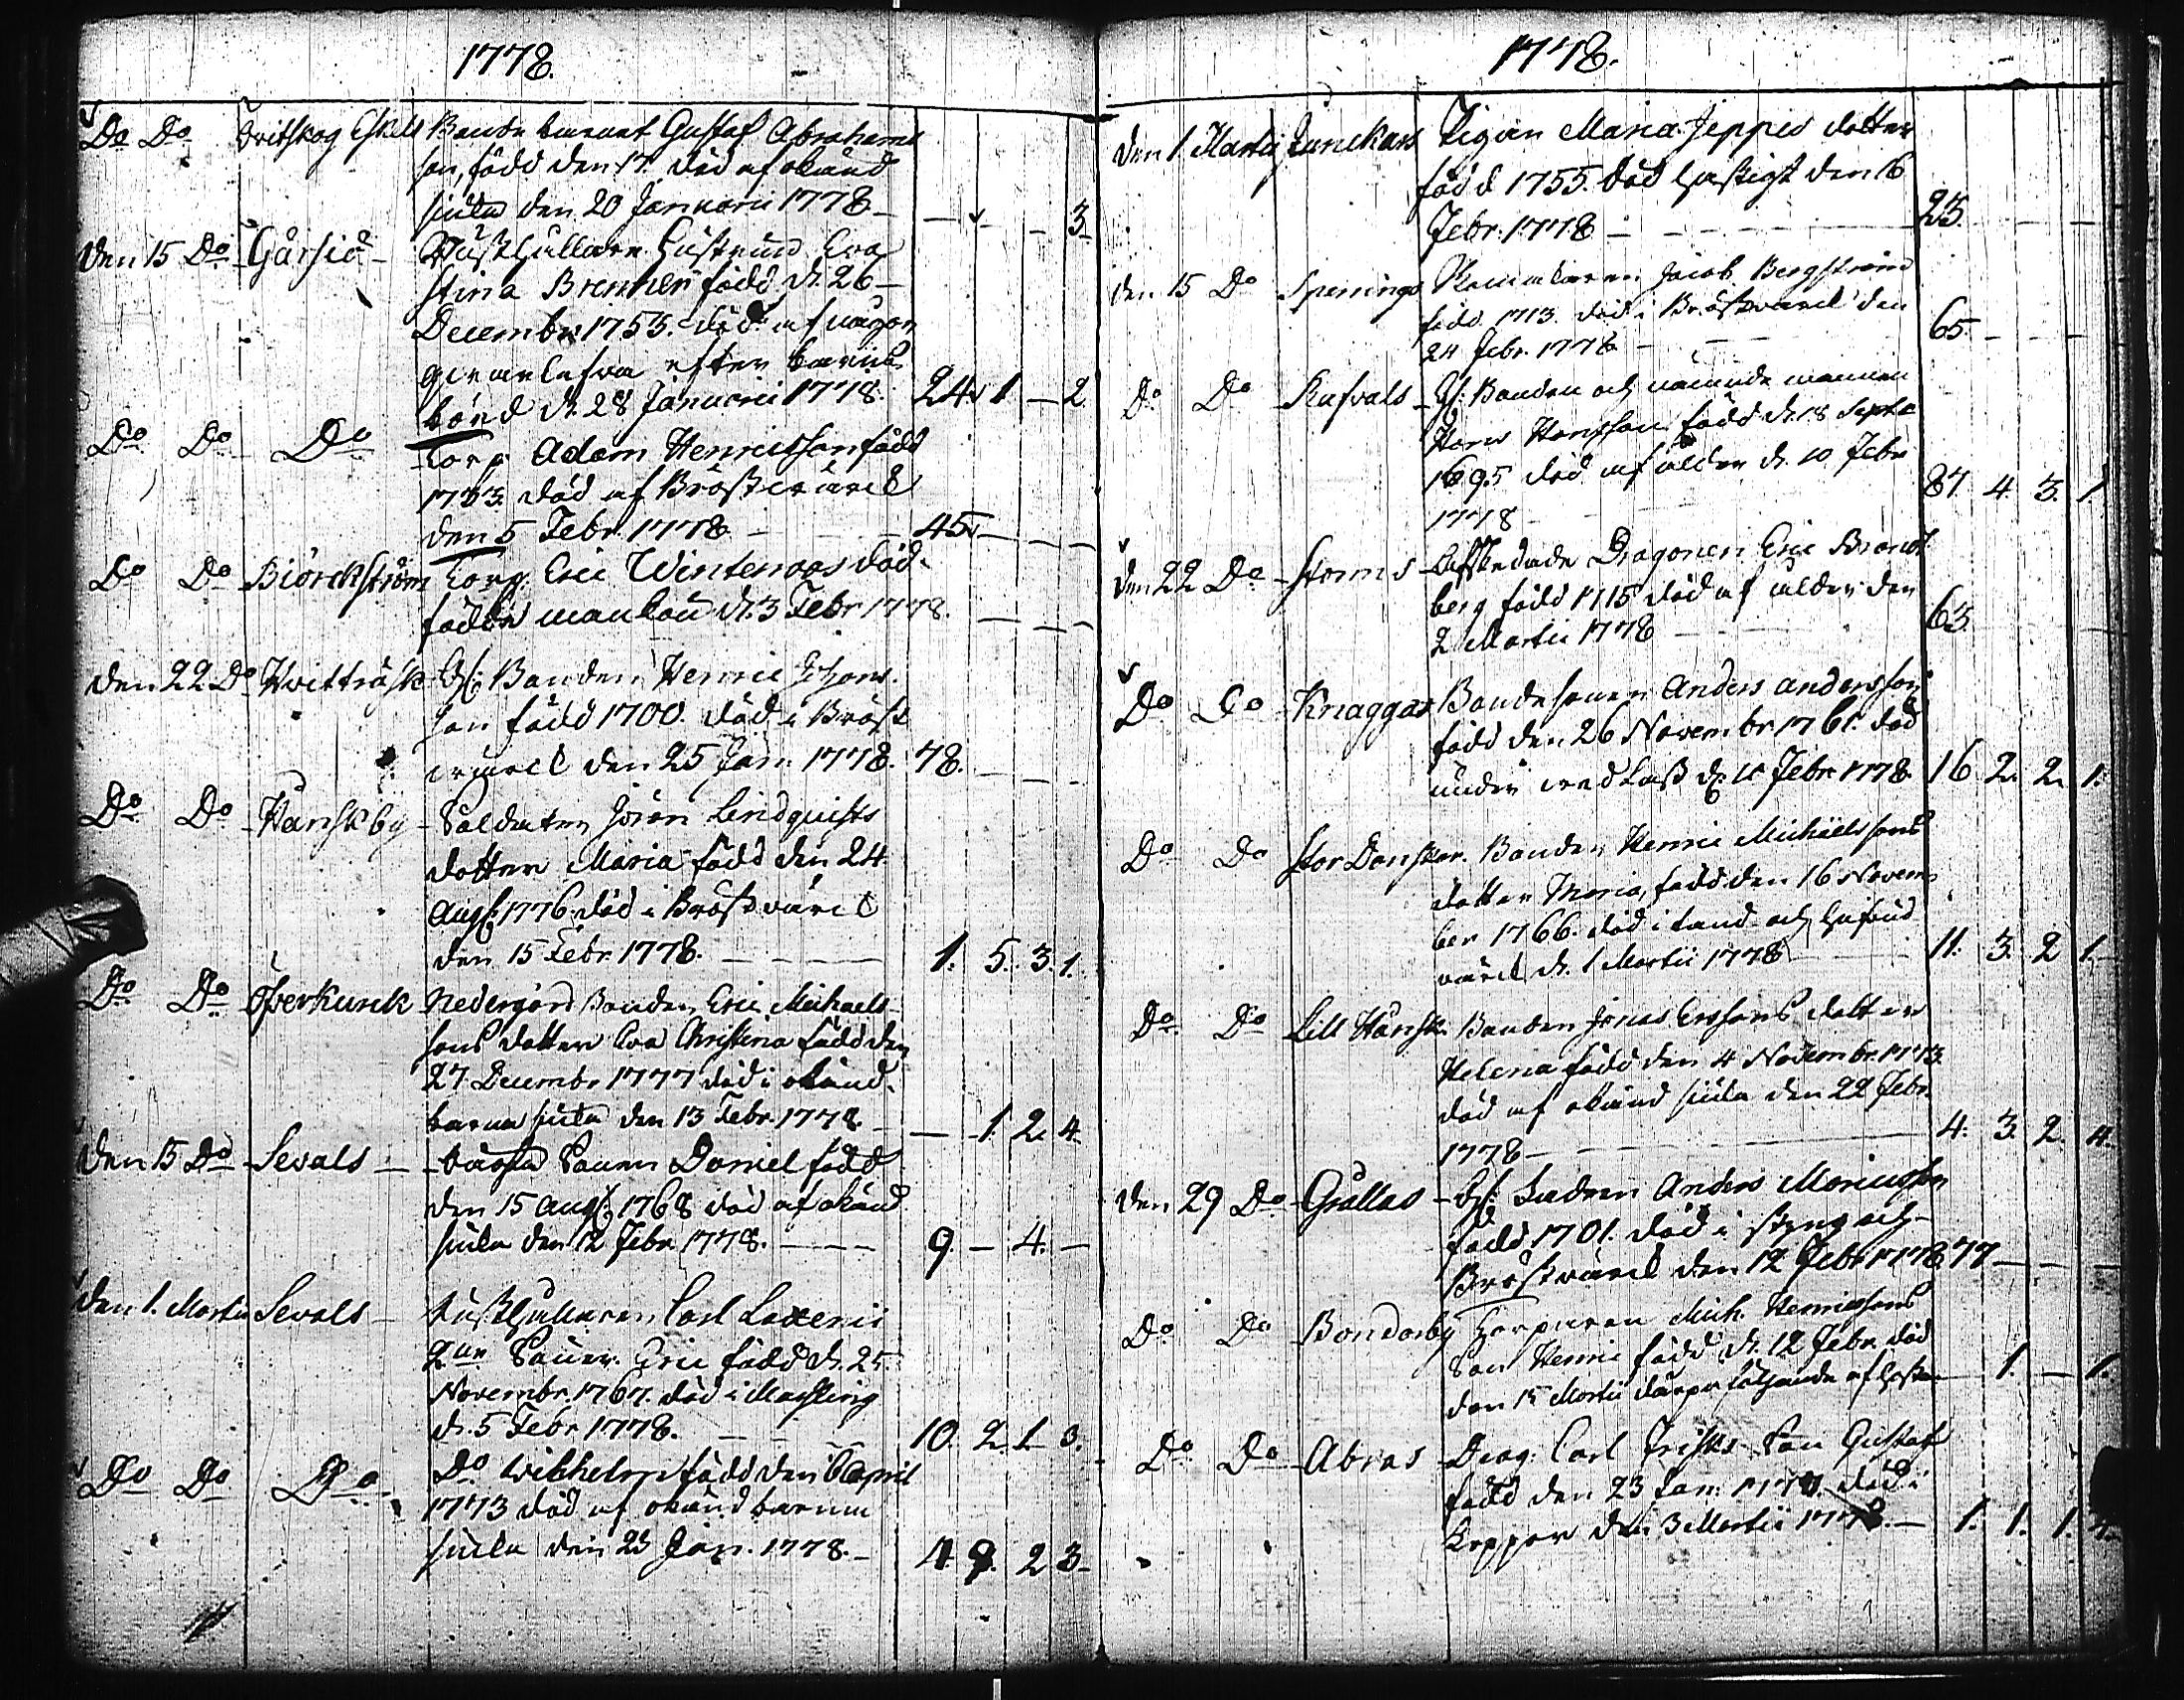 1778.
Do Do Evitskog Eskils Bonde barnet Gustaf Abrahams
son, född den 17. död af okänd
siuka den 20 Januarii 1778 — — — 3.
Den 15 Do Gårsiö Rusthållare Hustrun Eva
Stina Brenner född d. 26
Decembr. 1753. död af någon
efter barns
börd d. 28 Januarii 1778. 24. 1 — 2.
Do Do Do Torp. Adam Henricsson född
1733. död af Bröstwärck
den 5 Febr. 1778 — 45. — — —
Do Do Biörckström Torp. Eric Winteroos död-
födde mankön d. 3 Febr 1778. — — —
den 22 Do Hvitträsk Gl. Bonden Henric Johans
son född 1700. död i Bröst
wärck den 25 Jan. 1778. 78. — — —
Do Do Hanskby Soldaten Jöran Lindquists
dotter Maria född den 24
Augst. 1776 död i Bröstvärck
den 15 Febr 1778. — 1. 5. 3. 1.
Do Do Öfverkurck Nedergård Bonden Eric Michaels-
sons dotter Eva Christina född den
27 Decembr. 1777 död i okänd
barna siuka den 13 Febr. 1778. — 1. 2. 4.
den 15 Do Sevals — Sonen Daniel född
den 15 Augst. 1768 död af okänd
siuka den 12 Febr. 1778. — 9 — 4. —
den 1. Martii Sevals — Rusthållaren Carl Laxenii
Sonen Eric född d. 25
Novembr. 1767. död i Mässling
d. 5 Febr 1778. — 10. 2. 1. 3.
Do Do Do Do Wilhelm född den 6 April
1773 död af okänd barna
siuka den 23 Jan. 1778. — 4. 9. 2 3.
1778.
den 1 Martii Junckars Pigan Maria Jeppes dotter
född 1755. död hastigt den 16
Febr. 1778 — 23. — — —
den 15 Do Sperrings Jacob Bergström
född 1713. död i Bröstwärck den
24 Febr. 1778 — 65. — — —
Do Do Kafvals Gl. Bonden och nämnde mannen
Hans Hansson född d. 18 Sept.
1695 död af ålder d. 10 Febr
1778 — 87. 4. 3. 1
den 22 Do Storms Afskedade Dragonen Eric Brandt
berg född 1715 död af ålder den
2 Martii 1778 — 63.
Do Do Knaggas Bondesonen Anders Andersson
född den 26 Novembr 1761. död
under ved lass d. 10 Febr 1778. 16 2. 2. 1.
Do Do Stor Dansker. Bonden Henric Michaelssons
dotter Maria, född den 16 Novem-
ber 1766. död i tand och hufvud
värck d. 1 Martii 1778 — 11. 3. 2 1.
Do Do Lill Hansk. Bonden Jonas Erssons dotter
Helena född den 4 Novembr. 1773
död af okänd siuka den 22 Febr.
1778 — 4. 3. 2. 4.
den 29 Do Grållas Gl. Anders Mariusson
född 1701. död i styng och
Bröstwärck den 12 Febr 1778 77 — — —
Do Do Bondarby Torparen Mich. Henricssons
Son Henric född d. 12 Febr. död
den 15 Martii därpå följande af hosta 1. — 1.
Do Do Abras Drag. Carl Frisks Son Gustaf
född den 23 Jan. 1777. död i
Koppor den 3 Martii 1778. — 1. 1. 1. 4.